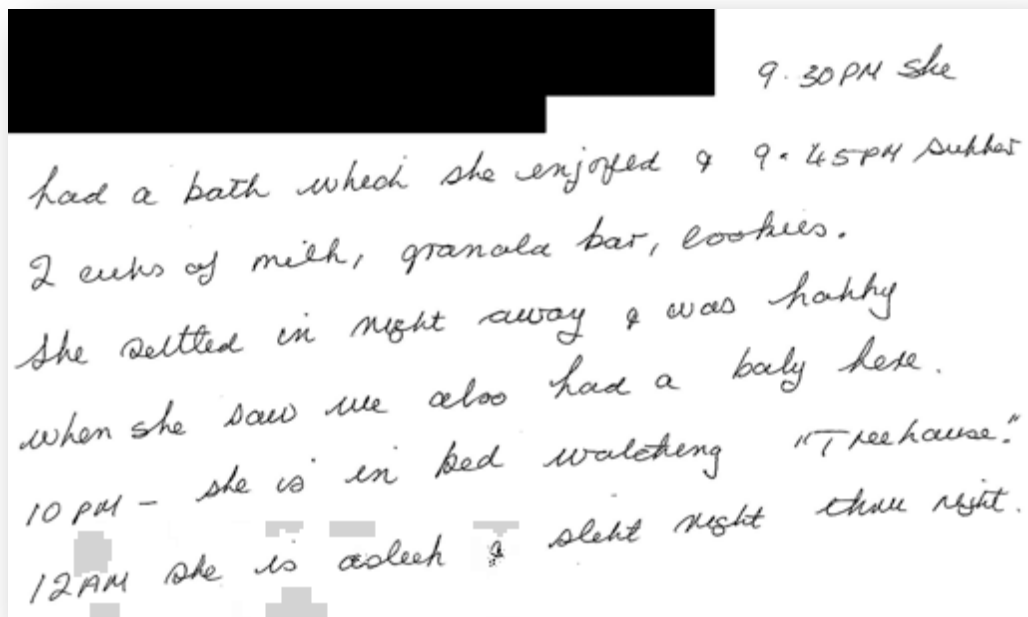 9.30PM she
had a bath which she enjoyed & 9.45PM supper
2 cups of milk, granola bar, cookies.
She settled in right away & was happy
when she saw we also had a baby here.
10PM - she is in bed watching "Treehouse."
12AM she is asleep & slept right thru night.